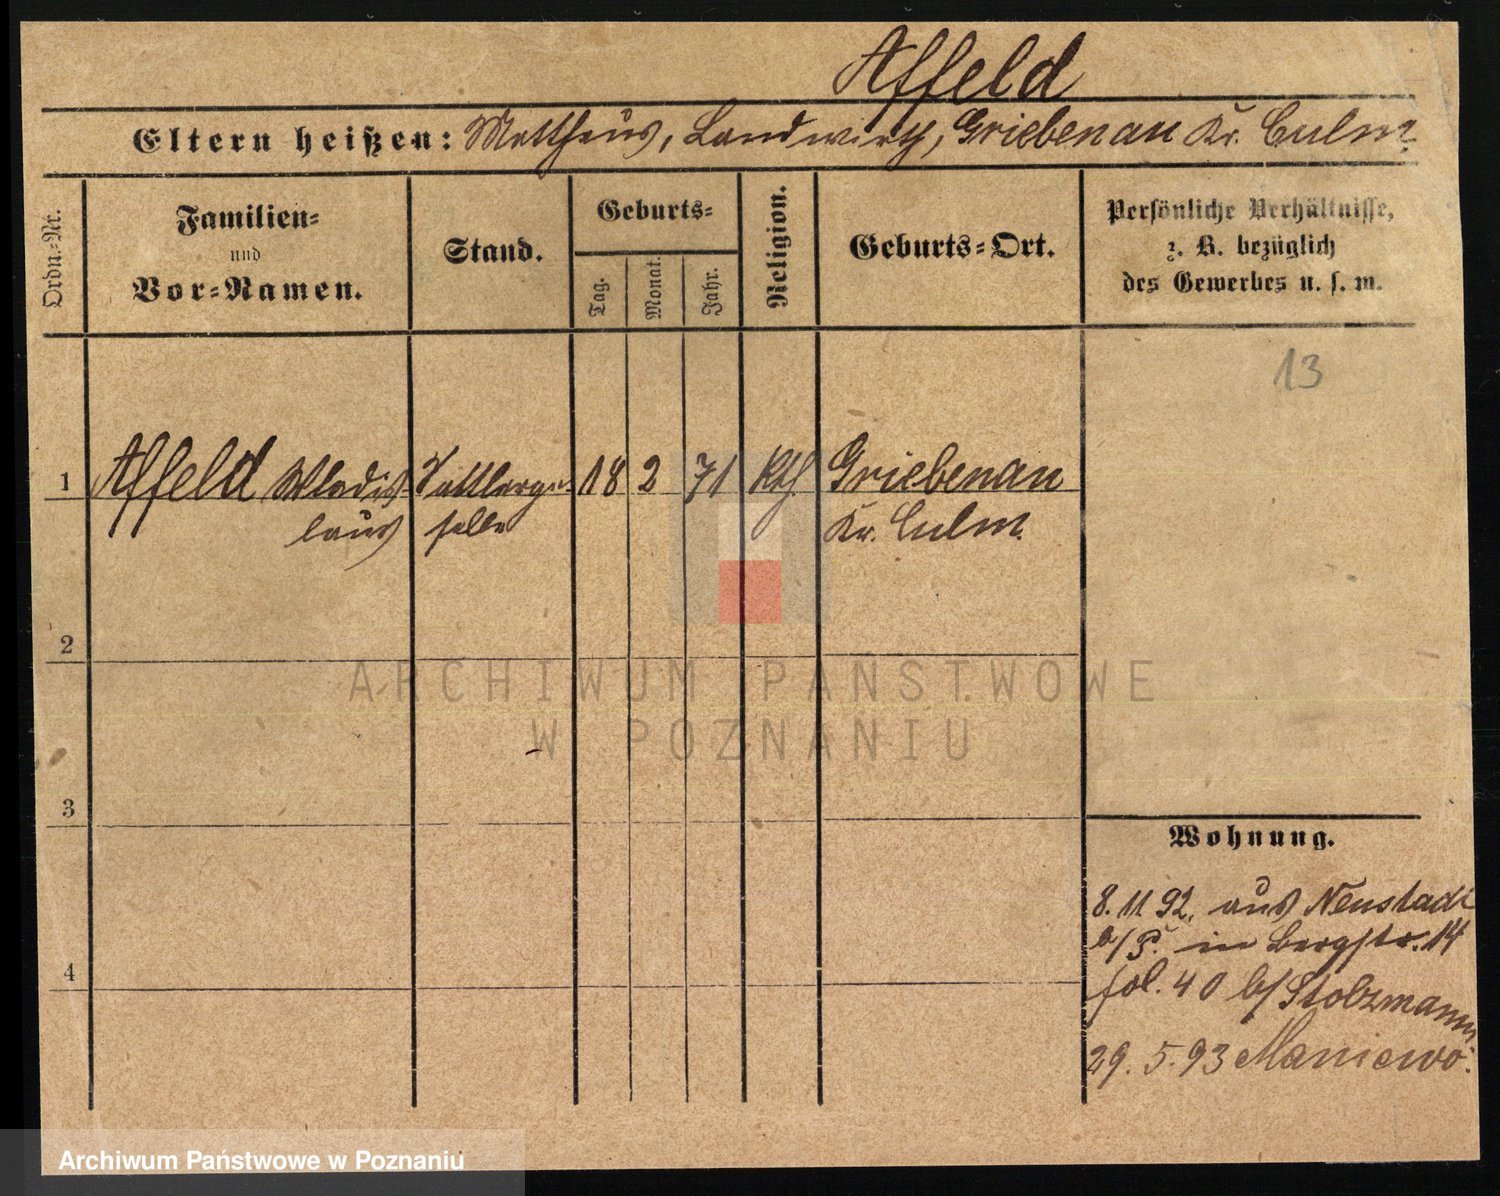 Affeld
Eltern heißen: Mattheus, Landwirth, Griebenau Kr. Culm.
Ordn.-Nr.
Familien-
und
Vor-Namen.
Stand.
Geburts-
Tag.
Monat.
Jahr.
Religion.
Geburts-Ort.
Persönliche Verhältnisse,
z. B. bezüglich
des Gewerbes u. s. w.
13
1 Affeld Wladis- Sattlerge- 18 2 71 kth. Griebenau
laus selle Kr. Culm.
2
ARCHIWUM PAŃSTWOWE
W POZNANIU
3
Wohnung.
8.11 92. aus Neustadt
b/P. in Bergstr. 14
4
fol. 40 b/ Stolzmann
29. 5. 93 Maniewo.
Archiwum Państwowe w Poznaniu